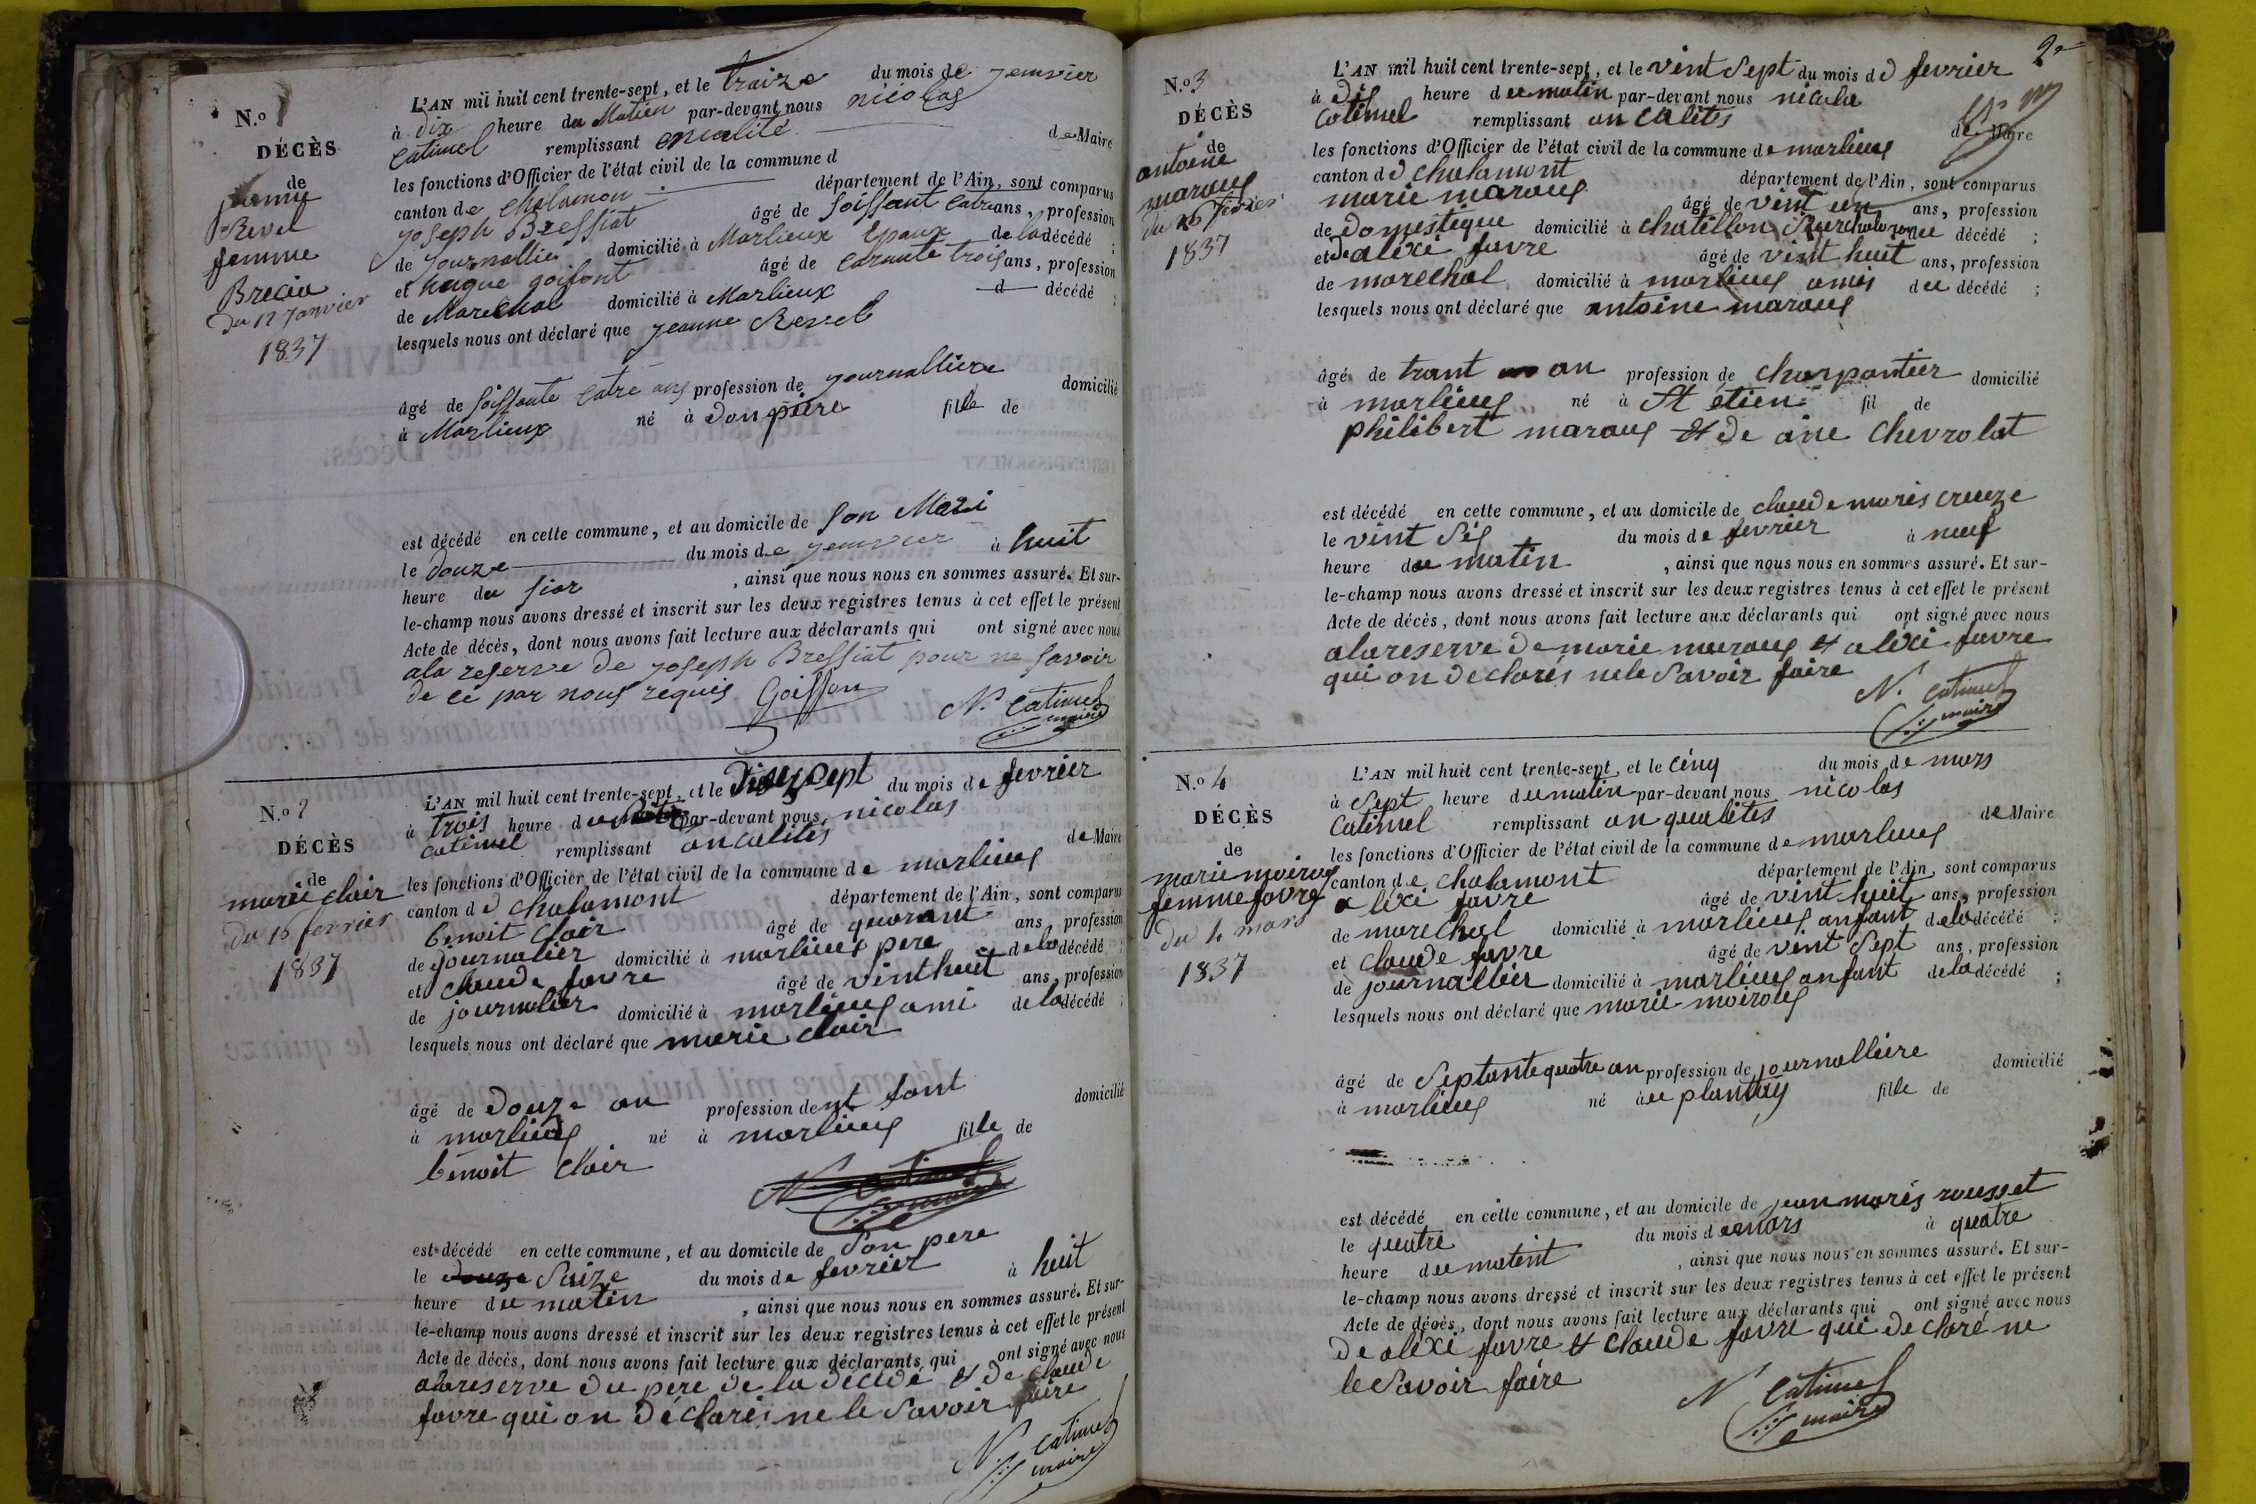 N.o 1
DÉCÈS
de
jeanne
Revel
femme
Brecia
du 12 janvier
1837
L'AN mil huit cent trente-sept, et le traize du mois de jenvier
à dix heure du Matien par-devant nous nicolas
Catimel remplissant enealité de Maire
les fonctions d'Officier de l'état civil de la commune d
canton de Chalamon département de l'Ain, sont comparus
joseph Bressiat âgé de soissant catre ans, profession
de journallie domicilié à Marlieux Epaux de la décédé ;
et hugue goifont âgé de carante trois ans, profession
de Marechal domicilié à Marlieux d décédé ;
lesquels nous ont déclaré que jeanne Revel
âgé de soissante catre ans profession de journalliere domicilié
à Marlieux né à Donpiere fille de
est décédé en cette commune, et au domicile de son Mari
le douze du mois de jenvier à huit
heure du sior , ainsi que nous nous en sommes assuré. Et sur-
le-champ nous avons dressé et inscrit sur les deux registres tenus à cet effet le présent
Acte de décès, dont nous avons fait lecture aux déclarants qui ont signé avec nous
ala reserve de joseph Bressiat pour ne savoir
de ce par nous requis Goiffon
N. Catimel
maire
N.o 2
DÉCÈS
de
marie clair
du 16 fevrier
1837
L'AN mil huit cent trente-sept, et le Dissept du mois de fevrier
à trois heure du par-devant nous nicolas
catimel remplissant ancalités de Maire
les fonctions d'Officier de l'état civil de la commune de marlieux
canton de chalamont département de l'Ain, sont comparus
benoit clair âgé de quarant ans, profession
de journalier domicilié à marlieux pere de la décédé ;
et claude favre âgé de vint huit ans, profession
de journalier domicilié à marlieux ami de la décédé ;
lesquels nous ont déclaré que marie clair
âgé de douze an profession de domicilié
à marlieux né à marlieux fille de
benoit clair
N Catimel
maire
est décédé en cette commune, et au domicile de son pere
le douze seize du mois de fevrier à huit
heure du matin , ainsi que nous nous en sommes assuré. Et sur-
le-champ nous avons dressé et inscrit sur les deux registres tenus à cet effet le présent
Acte de décès, dont nous avons fait lecture aux déclarants qui ont signé avec nous
alareserve du pere de la décédé et de claude
favre qui on déclarés ne le savoir faire
N. Catimel
maire
2e
N.o 3
DÉCÈS
de
antoine
maroux
du 26 fevrier
1837
L'AN mil huit cent trente-sept, et le vint sept du mois de fevrier
à dis heure du matin par-devant nous nicola
Catimel remplissant an calités de Maire
les fonctions d'Officier de l'état civil de la commune de marlieux
canton de chalamont département de l'Ain, sont comparus
marie maroux âgé de vint un ans, profession
de Domestique domicilié à chatillon décédé ;
et de alexi favre âgé de vint huit ans, profession
de marechal domicilié à marlieux amis du décédé ;
lesquels nous ont déclaré que antoine maroux
âgé de trant an profession de charpantier domicilié
à marlieux né à St étien fil de
philibert maroux et de ane chevrolat
est décédé en cette commune, et au domicile de claude maris creuze
le vint sis du mois de fevrier à neuf
heure du matin , ainsi que nous nous en sommes assuré. Et sur-
le-champ nous avons dressé et inscrit sur les deux registres tenus à cet effet le présent
Acte de décès, dont nous avons fait lecture aux déclarants qui ont signé avec nous
alareserve de marie maroux et alexi favre
qui on declarés ne le savoir faire
N. Catimel
maire
N.o 4
DÉCÈS
de
marie moiroux
femme favre
du 4 mars
1837
L'AN mil huit cent trente-sept, et le cinq du mois de mars
à sept heure du matin par-devant nous nicolas
Catimel remplissant an qualités de Maire
les fonctions d'Officier de l'état civil de la commune de marlieux
canton de chalamont département de l'Ain, sont comparus
alexi favre âgé de vint huit ans, profession
de marechal domicilié à marlieux anfant de la décédé ;
et claude favre âgé de vint sept ans, profession
de journallier domicilié à marlieux anfant de la décédé ;
lesquels nous ont déclaré que marie moiroux
âgé de septante quatre an profession de journalliere domicilié
à marlieux né à u plantay fille de
est décédé en cette commune, et au domicile de jean maris rousset
le quatre du mois de mars à quatre
heure du matint , ainsi que nous nous en sommes assuré. Et sur-
le-champ nous avons dressé et inscrit sur les deux registres tenus à cet effet le présent
Acte de décès, dont nous avons fait lecture aux déclarants qui ont signé avec nous
de alexi favre et claude favre qui declare ne
le savoir faire
N Catimel
maire